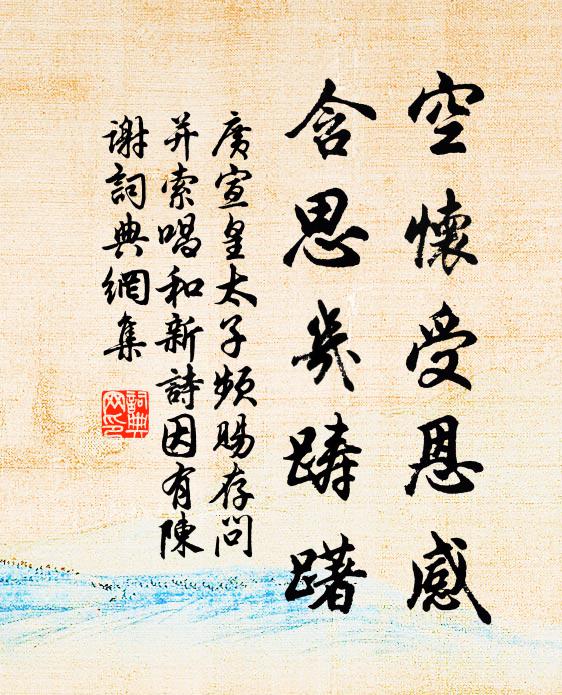 空懷受恩感
含思幾踌躇
廣宣皇太子頻賜存問
并索唱和新詩因有陳
謝詞典網集
詞典
网印